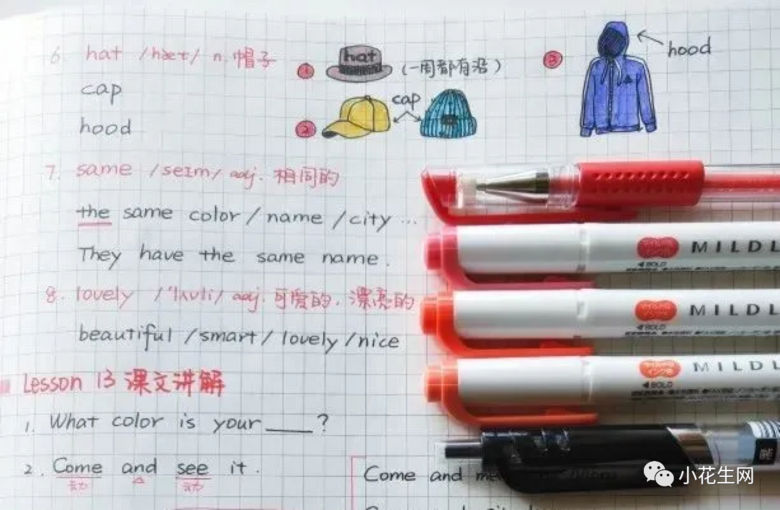 6. hat /hæt/ n. 帽子
① hat (一周都有沿)
③ hood
cap
② cap
hood
7. same /seɪm/ adj. 相同的
the same color / name / city ...
They have the same name.
8. lovely /'lʌvli/ adj. 可爱的. 漂亮的
beautiful / smart / lovely / nice
Lesson 13 课文讲解
1. What color is your ____ ?
2. Come and see it.
Come and
MILDL
BOLD
MILDL
BOLD
MILDL
BOLD
小花生网